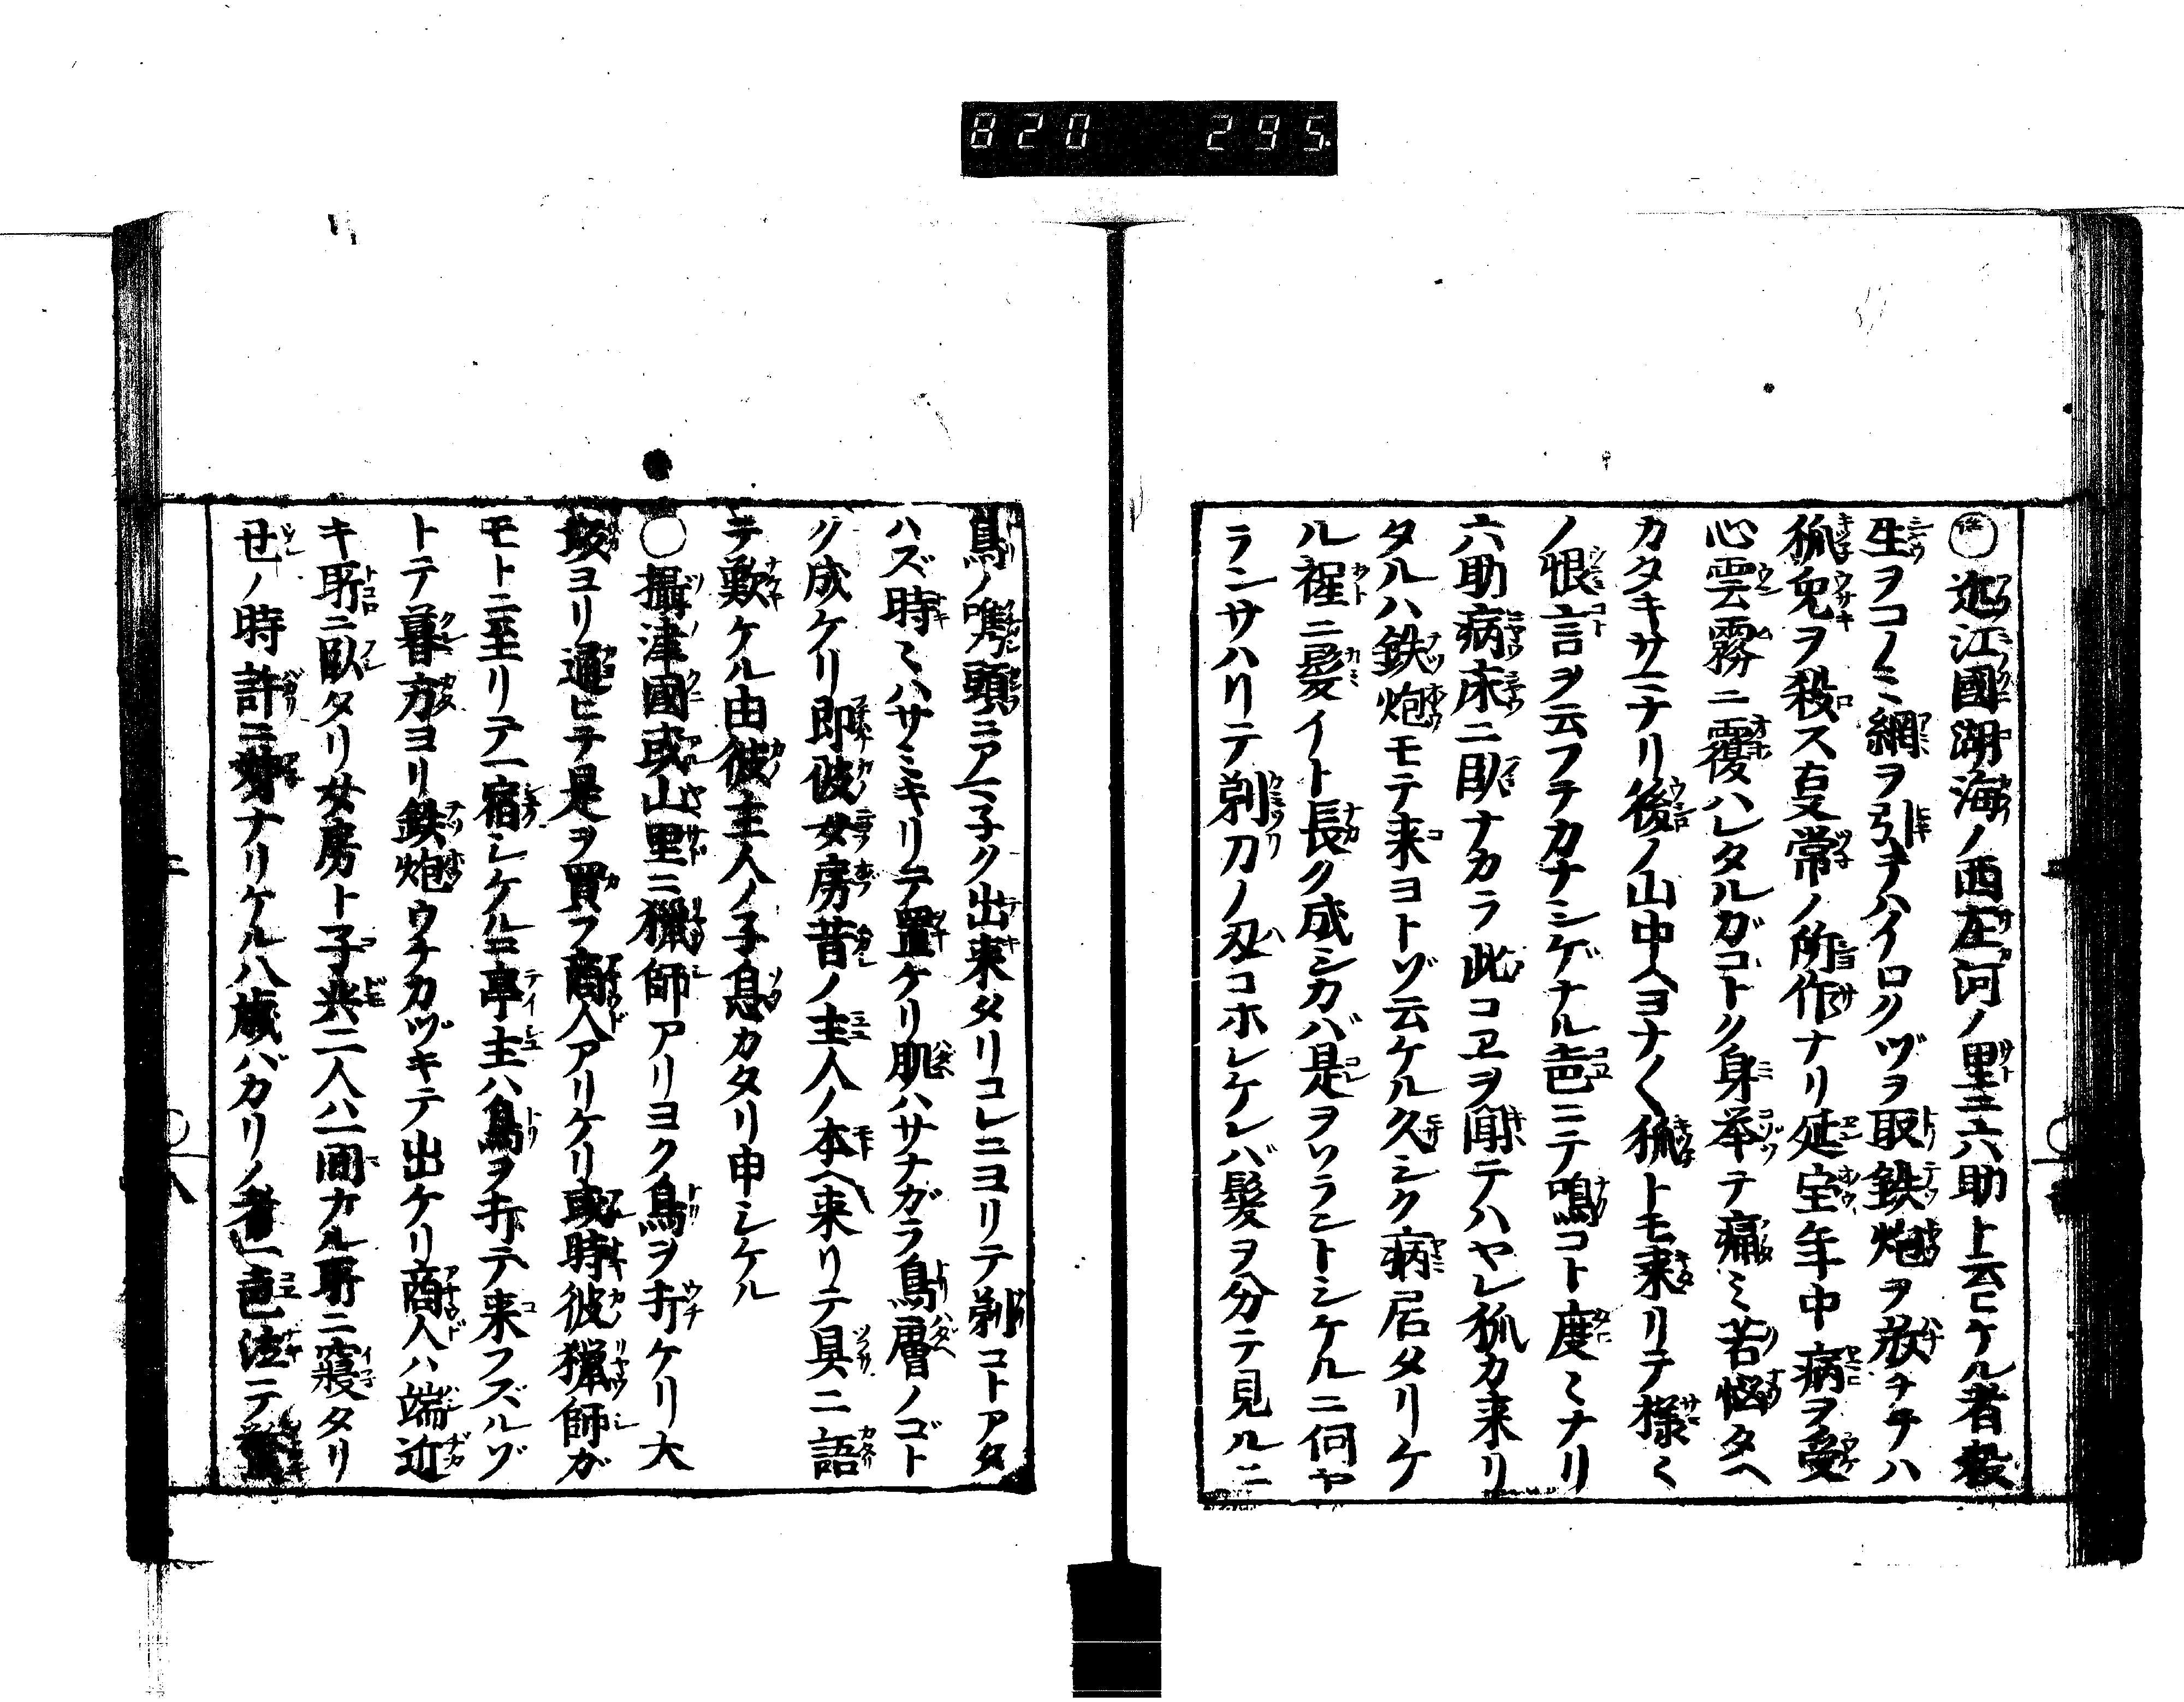 820 295.
近江國湖海ノ西左河ノ里ニ六助ト云ヒケル者殺
生ヲコノミ網ヲ引テハイロクヅヲ取鉄炮ヲ放テハ
狐兔ヲ殺ス叓常ノ所作ナリ延宝年中病ヲ受
心雲霧ニ覆ハレタルガコトク身举テ痛ミ苦悩タヘ
カタキサマナリ後ノ山中ヘヨナ〱狐トモ来リテ様〻
ノ恨言ヲ云フテカナシゲナル声ニテ鳴コト度〻ナリ
六助病床ニ臥ナカラ此コヱヲ聞テハヤレ狐カ来リ
タルハ鉄炮モテ来ヨトゾ云ケル久シク病居タリケ
ル程ニ髪イト長ク成シカバ是ヲソラントシケルニ何ヤ
ランサハリテ剃刀ノ刃コホレケレバ髪ヲ分テ見ルニ
鳥ノ觜頭ニアマタ出来タリコレニヨリテ剃コトアタ
ハズ時〻ハサミキリテ置ケリ肌ハサナガラ鳥膚ノゴト
ク成ケリ即彼女房昔ノ主人ノ本ヘ来リテ具ニ語
テ歎ケル由彼主人ノ子息カタリ申シケル
○攝津國或山里ニ獵師アリヨク鳥ヲ打ケリ大
坂ヨリ通ヒテ是ヲ買フ商人アリケリ或時彼猟師ガ
モトニ至リテ一宿シケルニ亭主ハ鳥ヲ打テ来フズルゾ
トテ暮方ヨリ鉄炮ウチカヅキテ出ケリ商人ハ端近
キ所ニ臥タリ女房ト子共二人ハ一間ナル所ニ寢タリ
丑ノ時許ニ ナリケル八歳バカリノ者一声泣テ